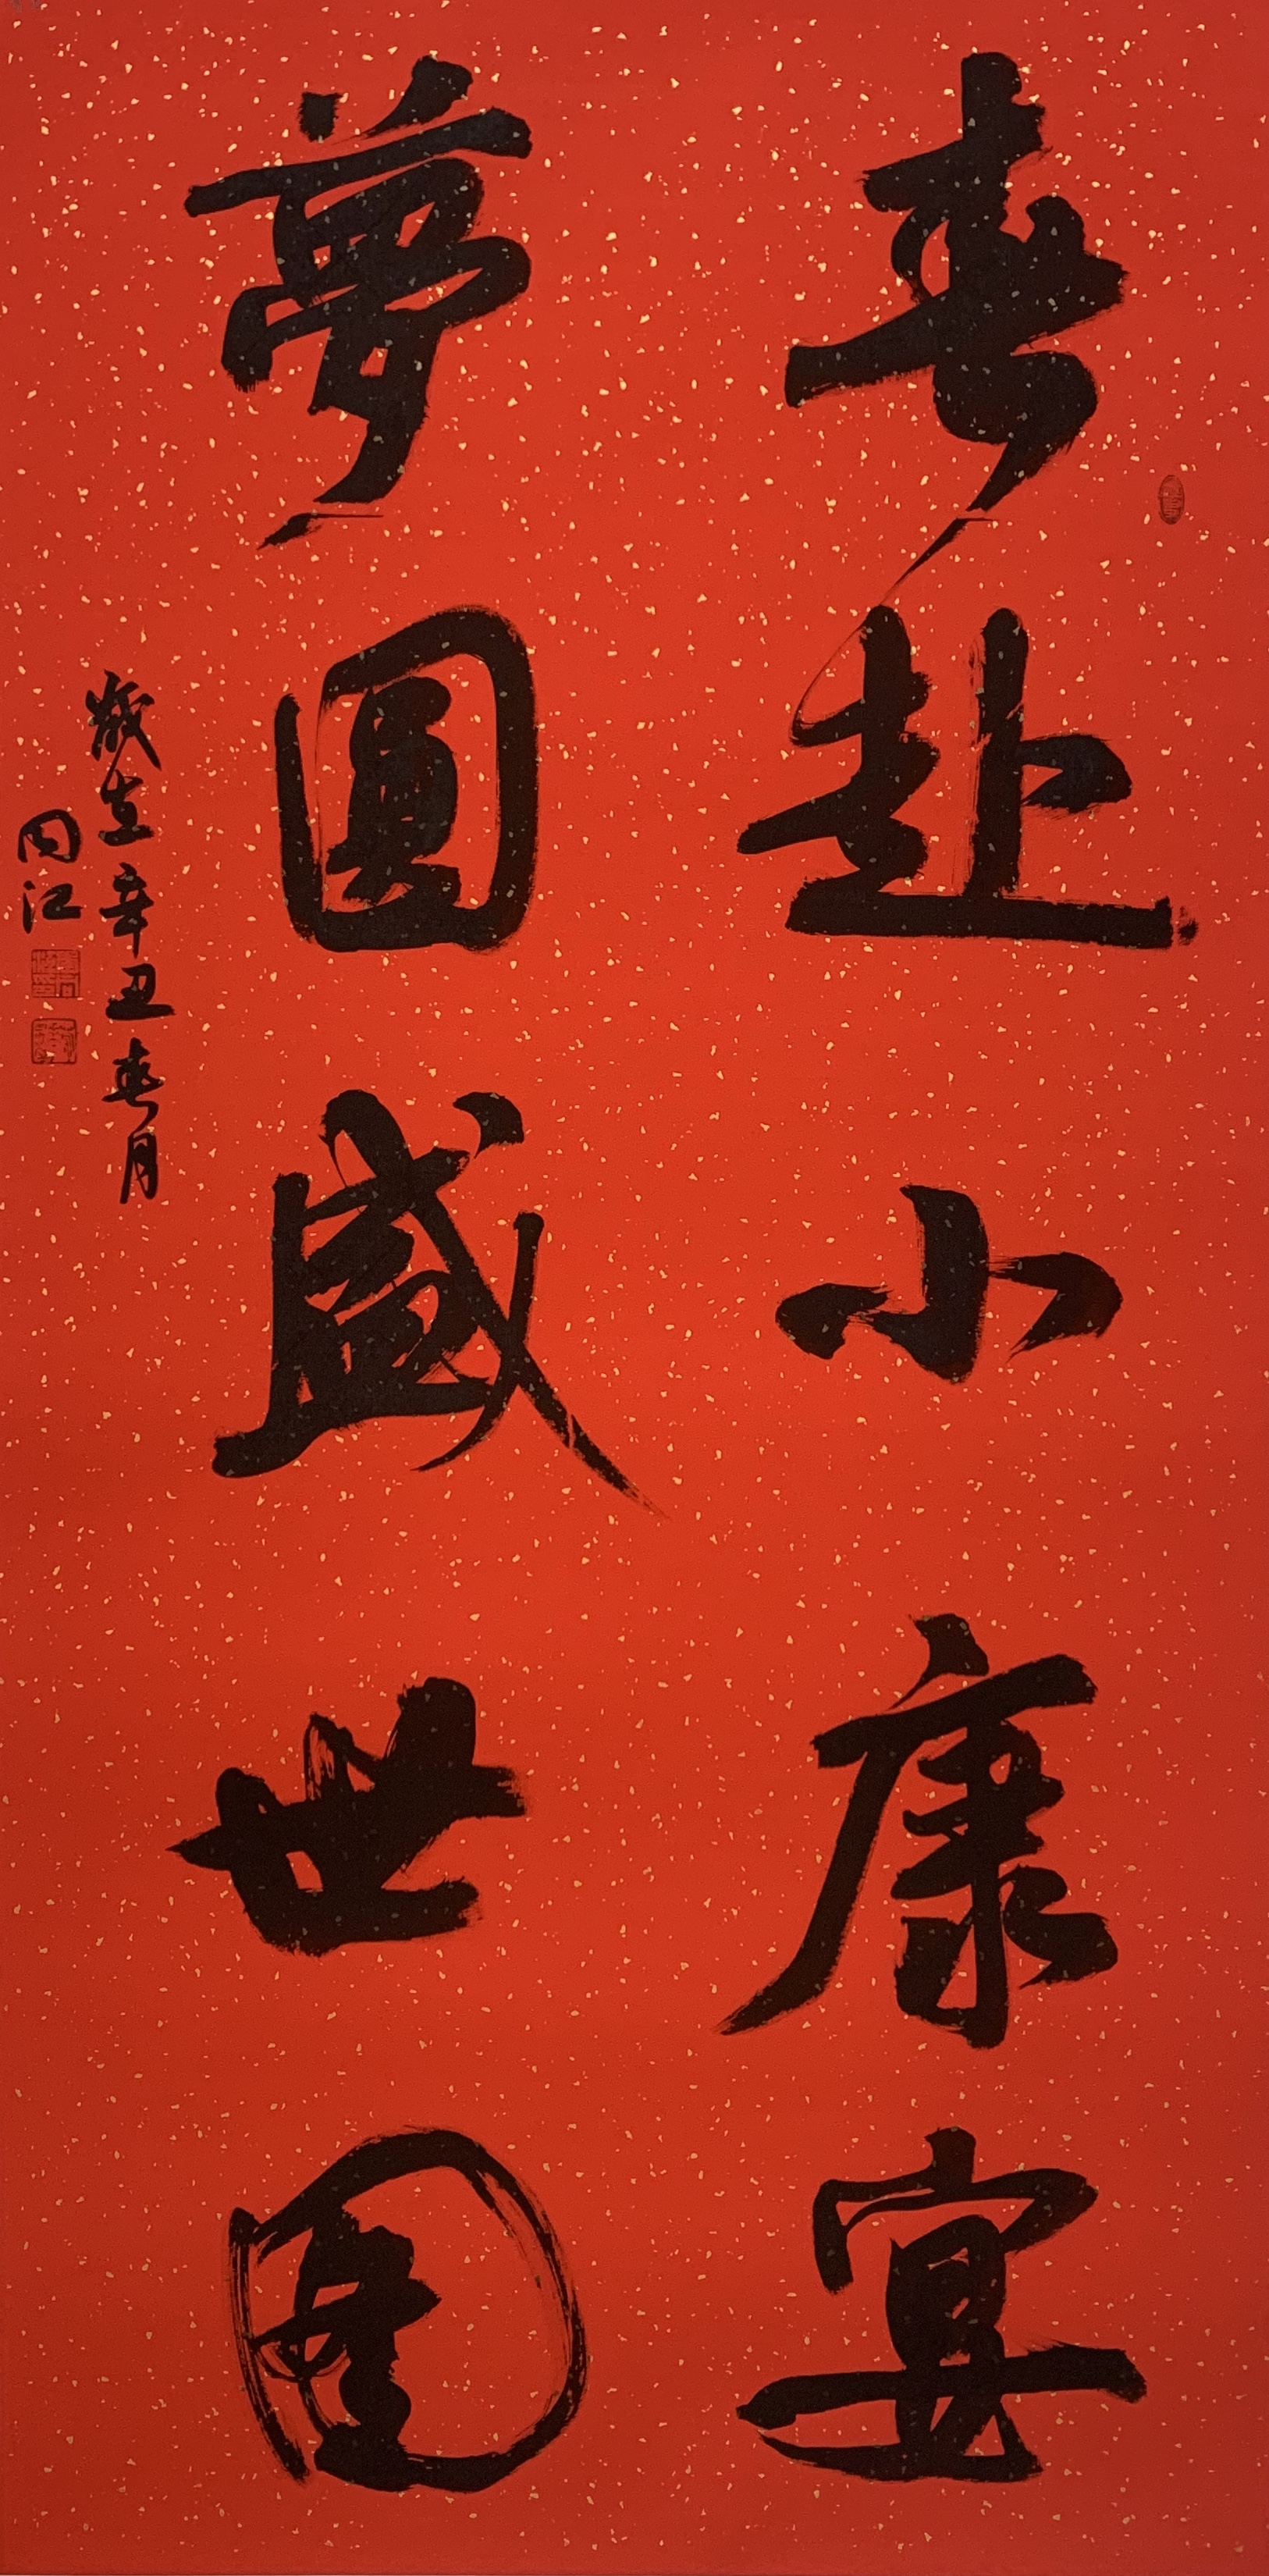 春赴小康宴
夢圓盛世圖
歲在辛丑春月
同江